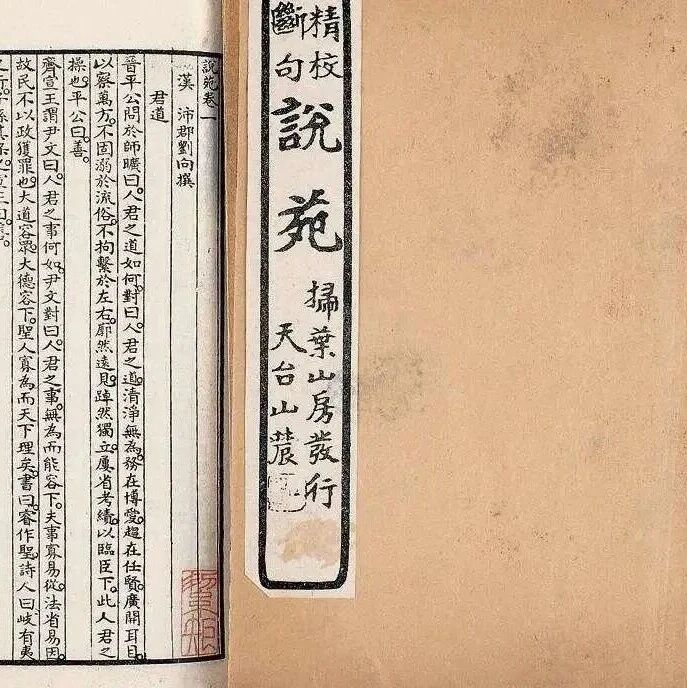 精校
斷句
說苑
掃葉山房發行
天台山農
說苑卷一
漢 沛郡劉向撰
君道
晉平公問於師曠曰。人君之道如何。對曰。人君之道。清淨無為。務在博愛。趨在任賢。廣開耳目。
以察萬方。不固溺於流俗。不拘繫於左右。廓然遠見。踔然獨立。屢省考績。以臨臣下。此人君之
操也。平公曰。善。
齊宣王謂尹文曰。人君之事何如。尹文對曰。人君之事。無為而能容下。夫事寡易從。法省易因。
故民不以政獲罪也。大道容眾。大德容下。聖人寡為而天下理矣。書曰。睿作聖。詩人曰。岐有夷